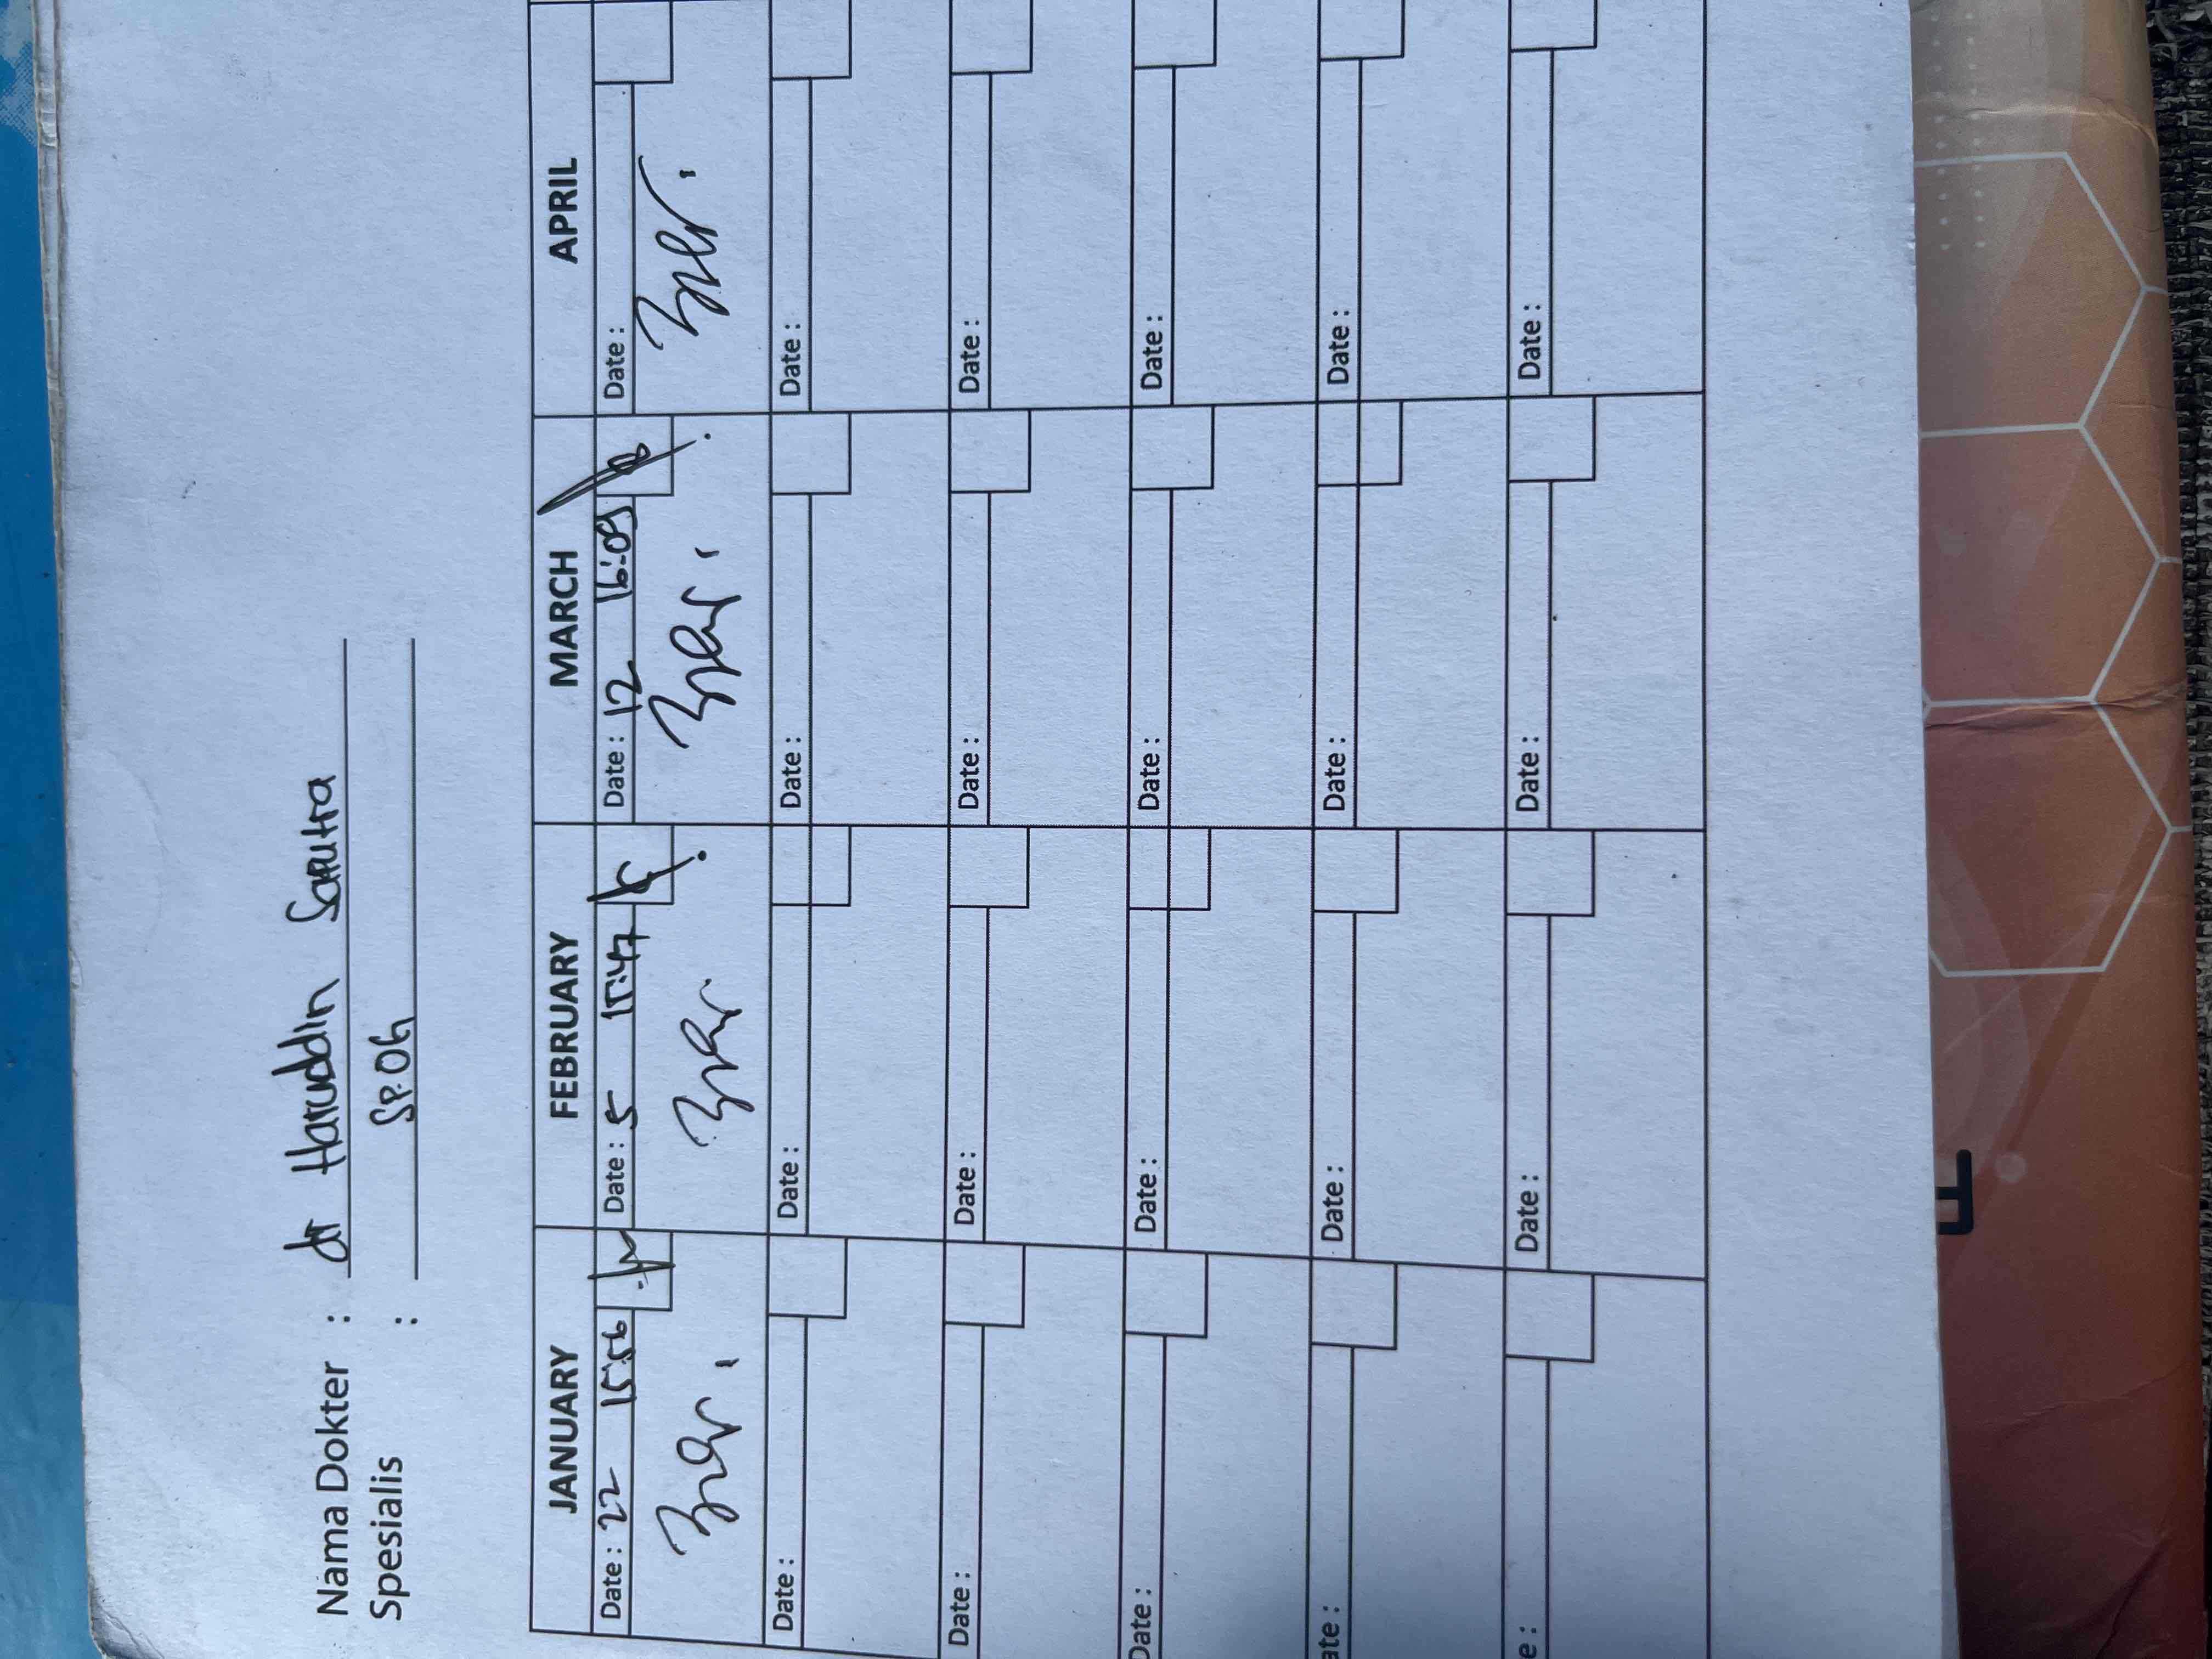 Nama Dokter : dr Haruddin Saputra
Spesialis : SP.OG
JANUARY FEBRUARY MARCH APRIL
Date : 22 15:56 Date : 5 15:47 Date : 12 16:09 Date :
Date : Date : Date : Date :
Date : Date : Date : Date :
Date : Date : Date : Date :
ate : Date : Date : Date :
e : Date : Date : Date :
F